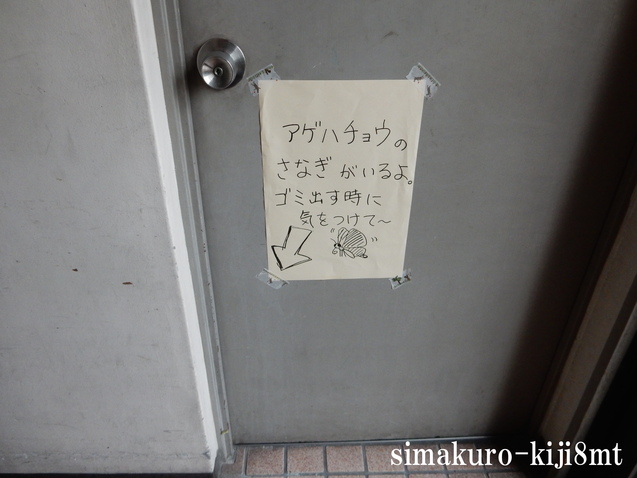 アゲハチョウの
さなぎがいるよ。
ゴミ出す時に
気をつけて〜
simakuro-kiji8mt